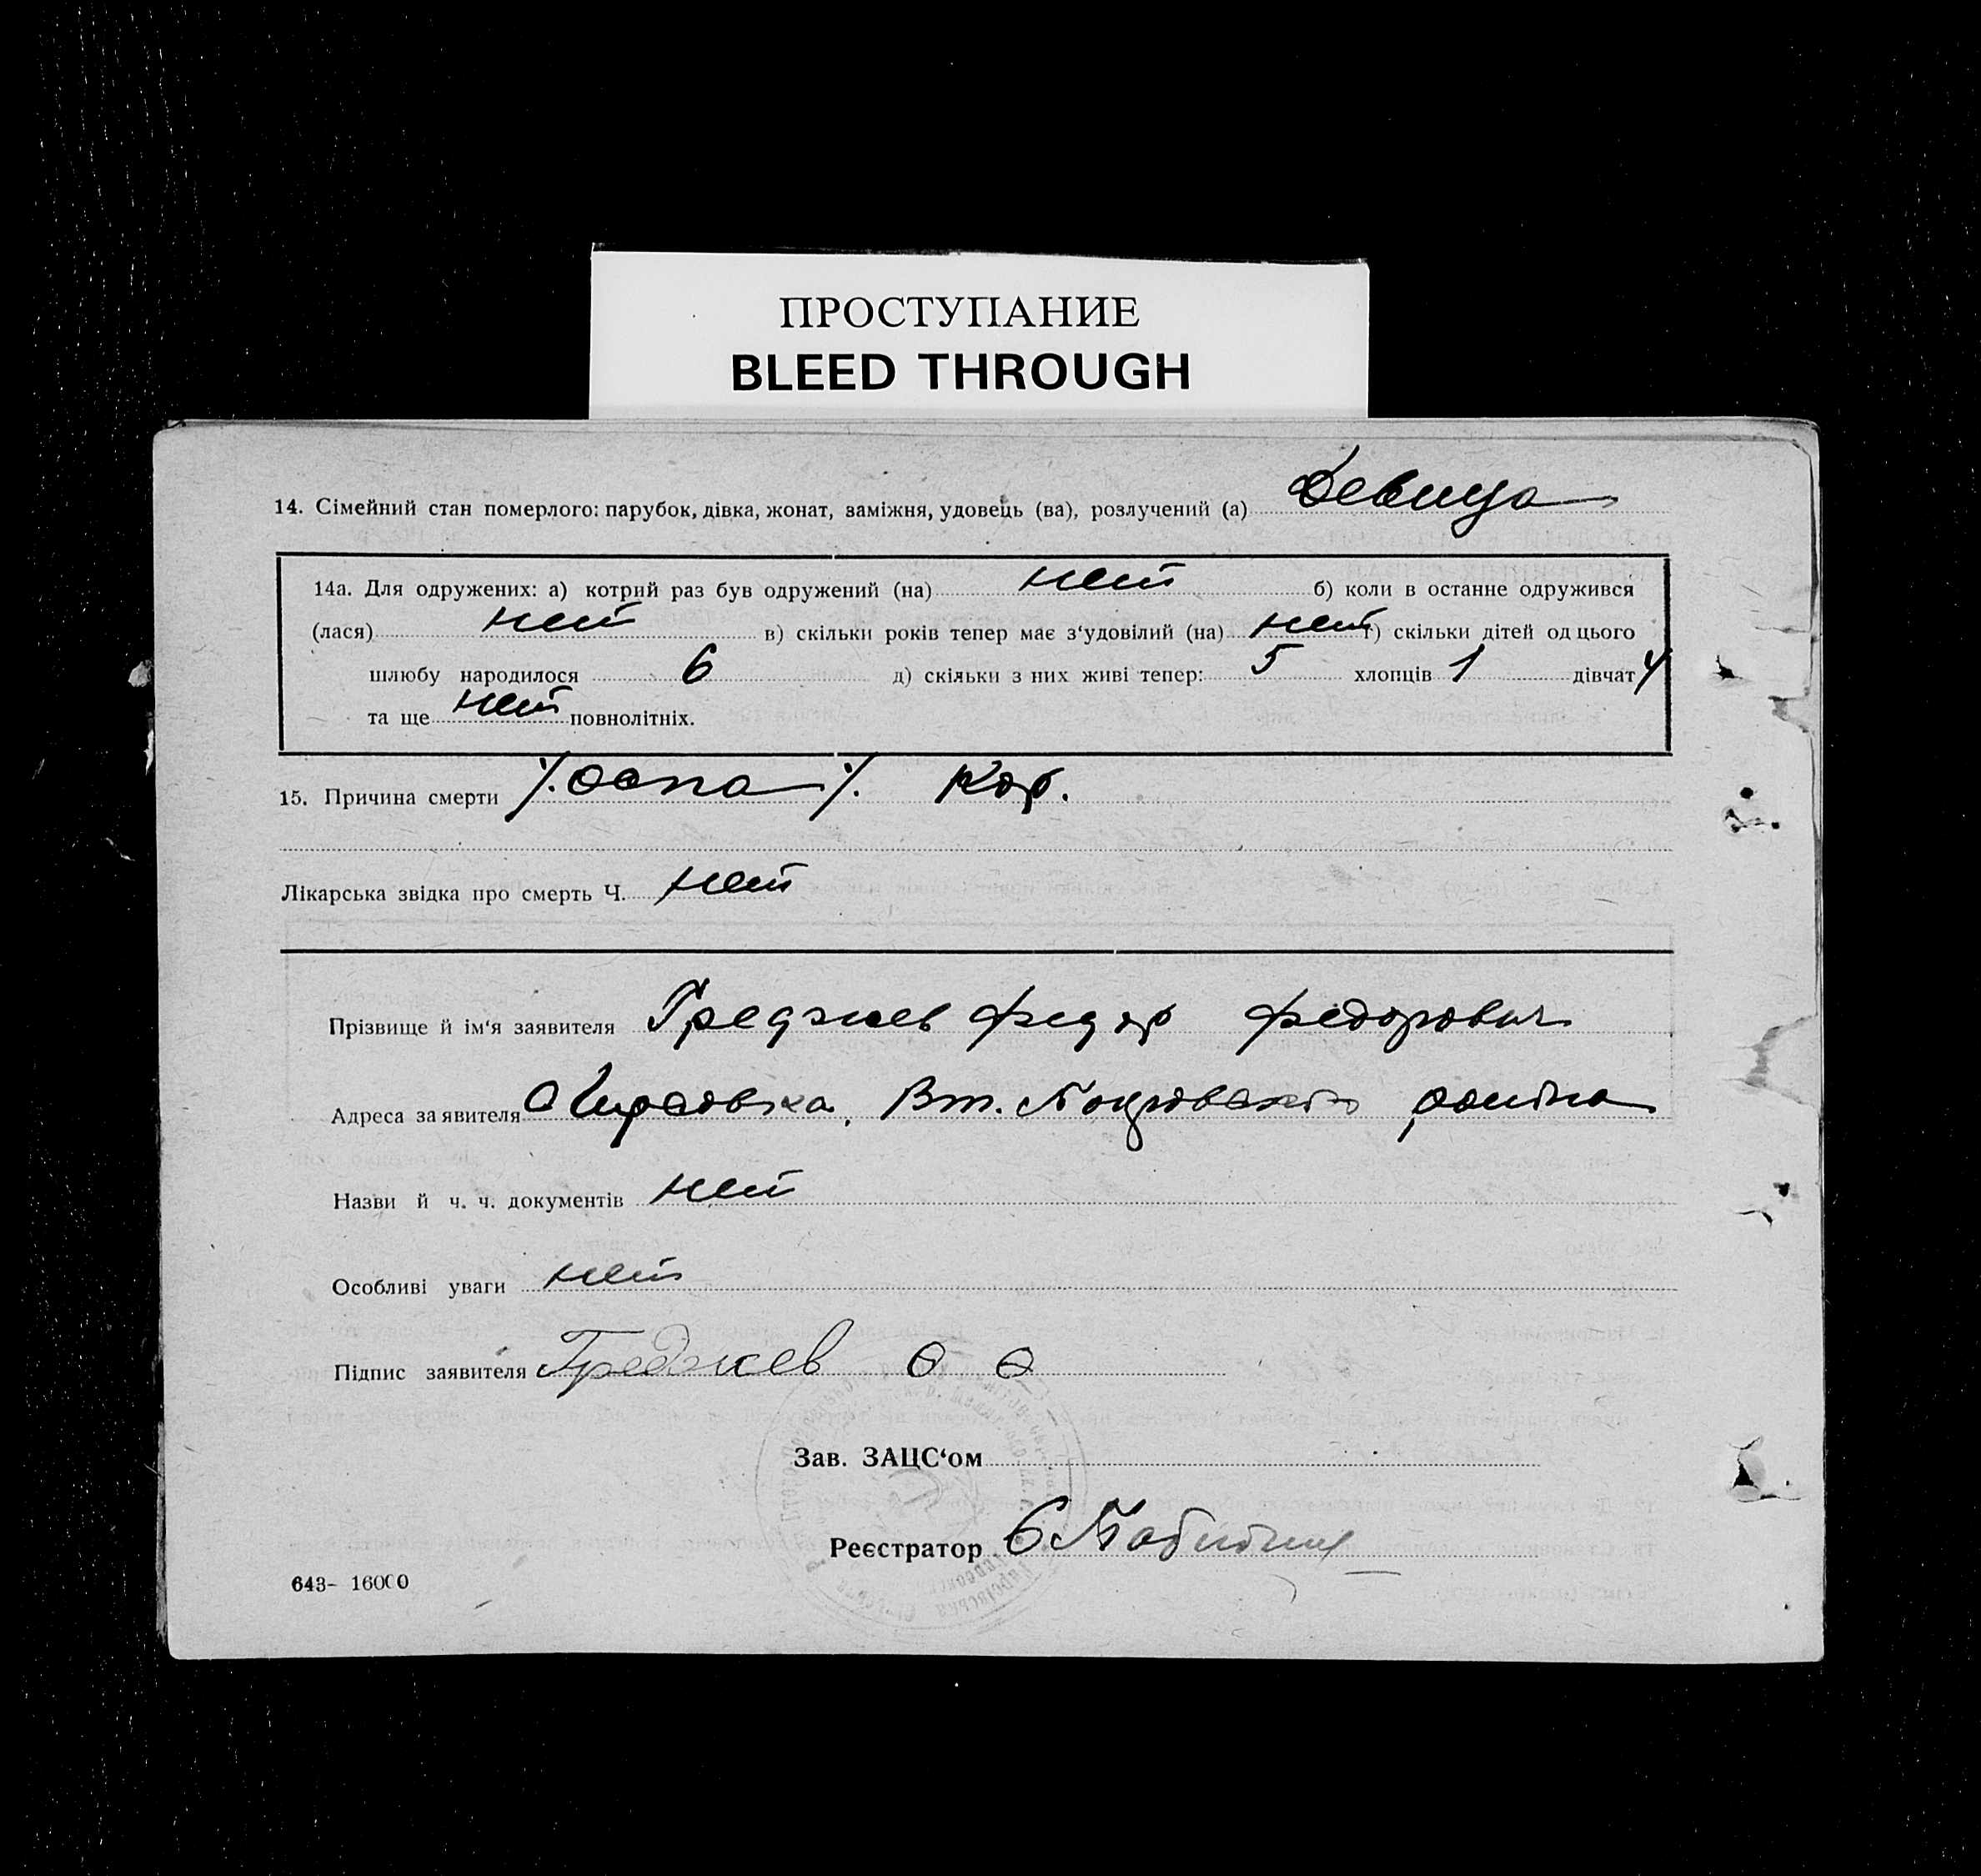 ПРОСТУПАНИЕ
BLEED THROUGH
14. Сімейний стан померлого: парубок, дівка, жонат, заміжня, удовець (ва), розлучений (а) Девица
14а. Для одружених: а) котрий раз був одружений (на) нет б) коли в останне одружився
(лася) нет в) скільки років тепер має з‘удовілий (на) нет г) скільки дітей од цього
шлюбу народилося 6 д) скільки з них живі тепер: 5 хлопців 1 дівчат 4
та ще нет повнолітніх.
15. Причина смерти ./. оспа ./. Кор.
Лікарська звідка про смерть Ч. нет
Прізвище й ім‘я заявителя Греджев Федор Федорович
Адреса заявителя Вт. Покровского района
Назви й ч. ч. документів нет
Особливі уваги нет
Підпис заявителя Греджев Ѳ Ѳ
Зав. ЗАЦС‘ом
Реєстратор
643- 16000